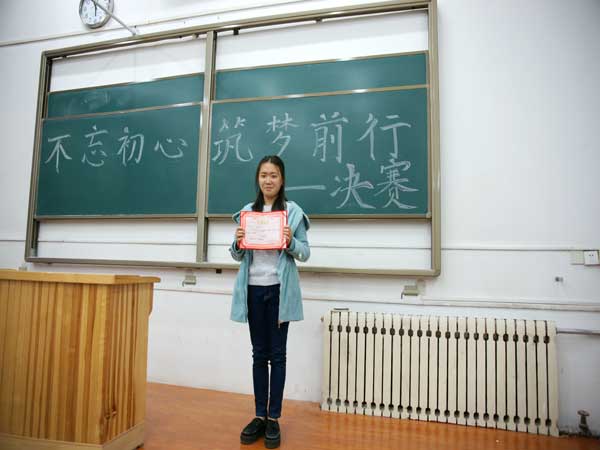 不忘初心 筑梦前行
—决赛